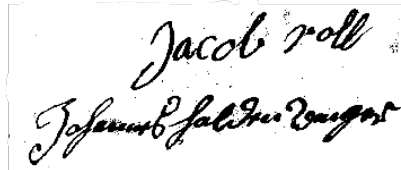 Jacob roll
Johannes halden Wanger